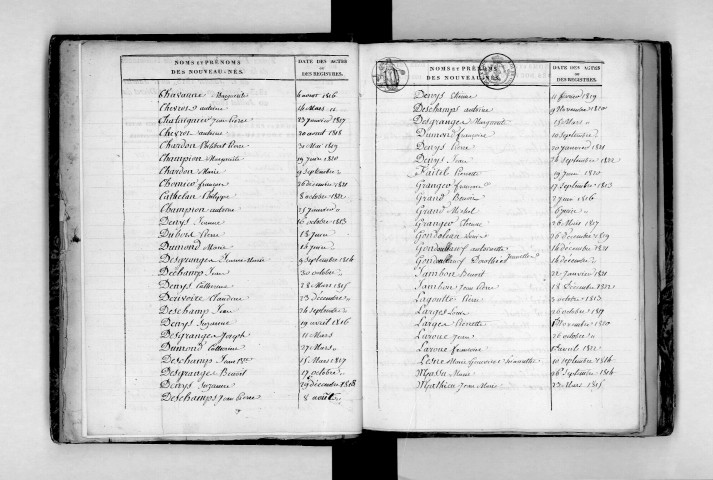 NOMS ET PRÉNOMS
DES NOUVEAU-NÉS.
DATE DES ACTES
OU
DES REGISTRES.
Chavanne Marguerite 6 aout 1816
Chevros antoine 16 Mars
Chatagnier Jean Pierre 23 Janvier 1817
Chevros antoine 30 aout 1818
Chardon Philibert Pierre 31 Mai 1819
Champion Marguerite 19 Juin 1820
Chardon Marie 9 Septembre
Chomier françois 26 décembre 1821
Cathelan Philippe 8 octobre 1822
Champion antoine 25 Janvier
Denys Jeanne 10 octobre 1813
Dubost Pierre 18 Juin
Dumond Marie 16 Juin
Desgranges Jeanne Marie 9 Septembre 1814
Dechamp Jean 30 octobre
Denys Catherine 28 Mars 1815
Deuvoire Claudine 23 décembre
Deschamp Jean 26 Septembre
Denys Suzanne 19 avril 1816
Desgranges Joseph 11 Mars
Dumond Catherine 27 Mars
Deschamps Jean 15 Mars 1817
Desgranges Benoit 17 octobre
Denys Suzanne 29 décembre 1818
Deschamps Jean Pierre 8 août
NOMS ET PRÉNOMS
DES NOUVEAU-NÉS.
DATE DES ACTES
OU
DES REGISTRES.
Denys Etienne 11 février 1819
Deschamps antoine 9 Novembre 1820
Desgranges Margueritte 15 Mars
Dumond françoise 10 Septembre
Denys Pierre 20 Janvier 1821
Denys Jean 26 Septembre 1822
Faitel Pierrette 19 Juin 1820
Granger francois 17 Septembre 1813
Grand Benoit 2 Juin 1816
Grand Michel 6 Juin
Granger Etienne 26 Mars 1817
Gondoleau Louise 26 décembre 1819
16 décembre 1821
16 décembre
Jambon Benoit 22 Janvier 1821
Jambon Jean Pierre 18 Décembre 1822
Lagoutte Pierre 3 octobre 1813
Larges Louis 26 octobre 1819
Larges Pierrette Novembre 1820
Laroue Jean 26 octobre
Laroue francoise avril 1822
10 Septembre 1814
Massu Marie 26 Septembre 1814
Mathieu Jean Marie 23 Mars 1815